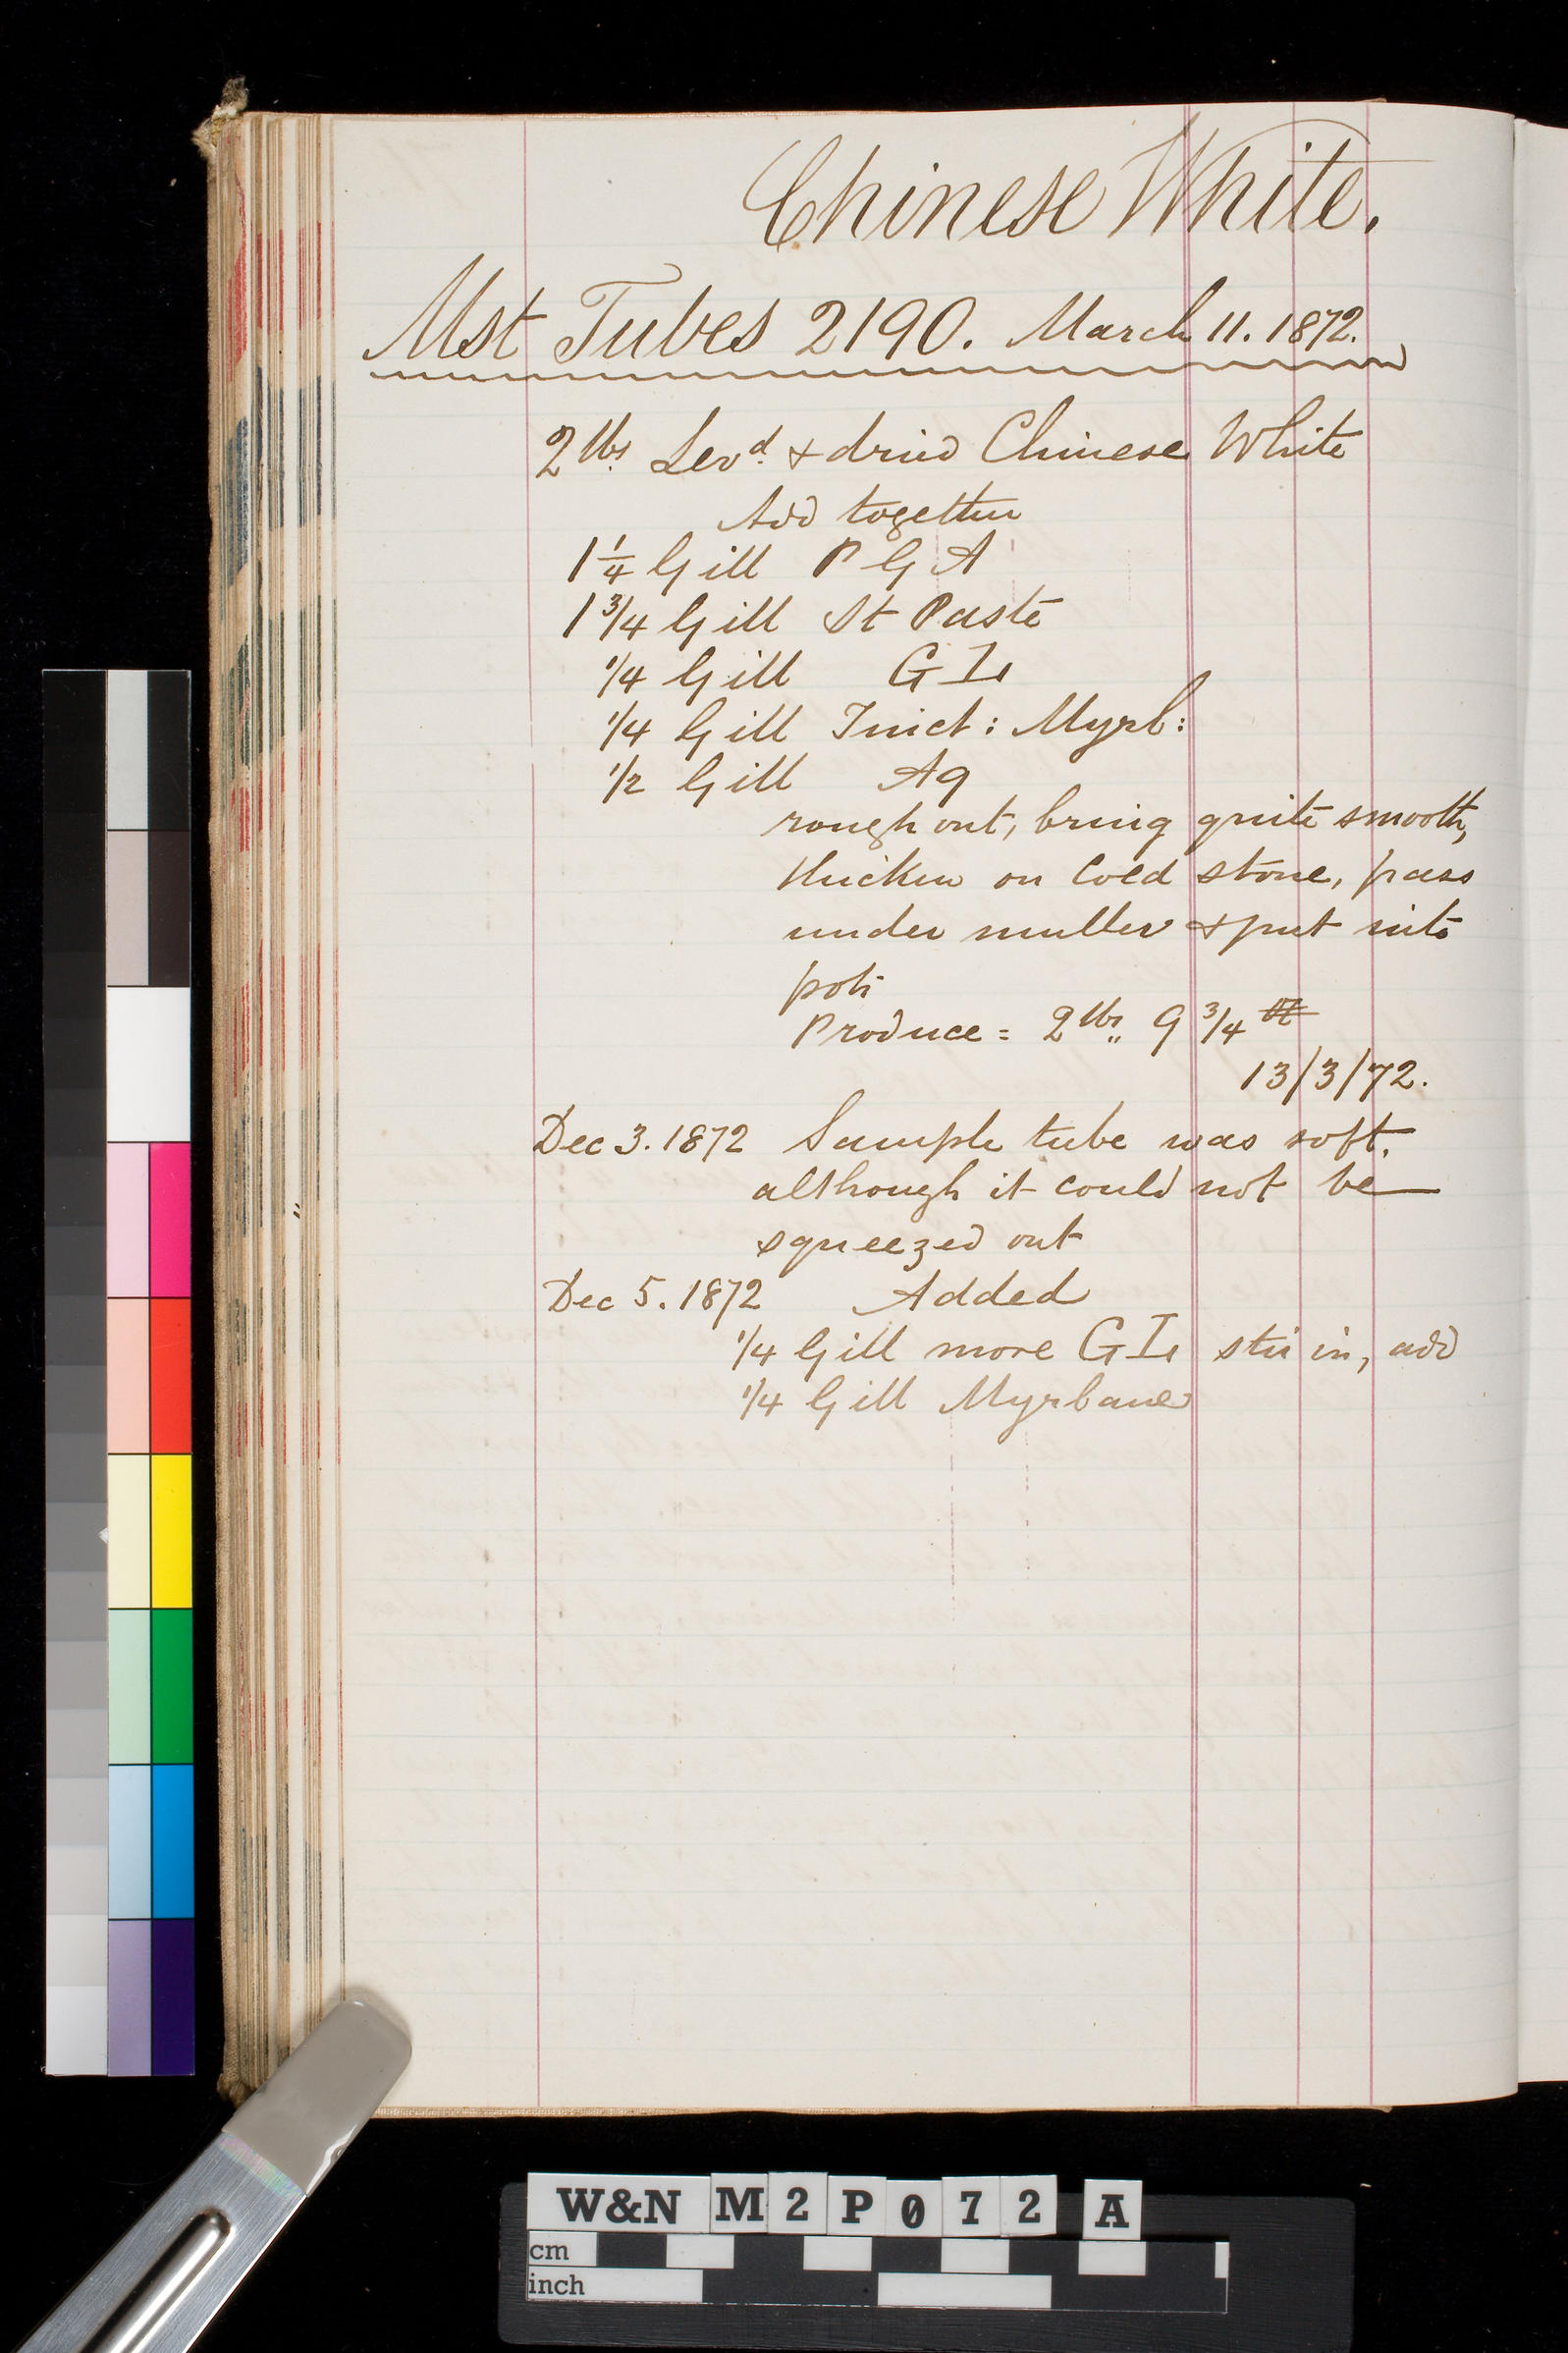 Chinese White.
Mst Tubes 2190. March 11. 1872.
2 lbs Levd. & dried Chinese White
Add together
1 1/4 Gill P G A
1 3/4 Gill St Paste
1/4 Gill G I
1/4 Gill Tinct: Myrb:
1/2 Gill Aq
rough out, bring quite smooth,
thicken on Cold stone, pass
under muller & put into
pots
Produce = 2 lbs,, 9 3/4
13/3/72.
Dec 3. 1872 Sample tube was soft,
although it could not be
squeezed out
Dec 5. 1872 Added
1/4 Gill more G I stir in, add
1/4 Gill Myrbane
W&N M2P072 A
cm
inch